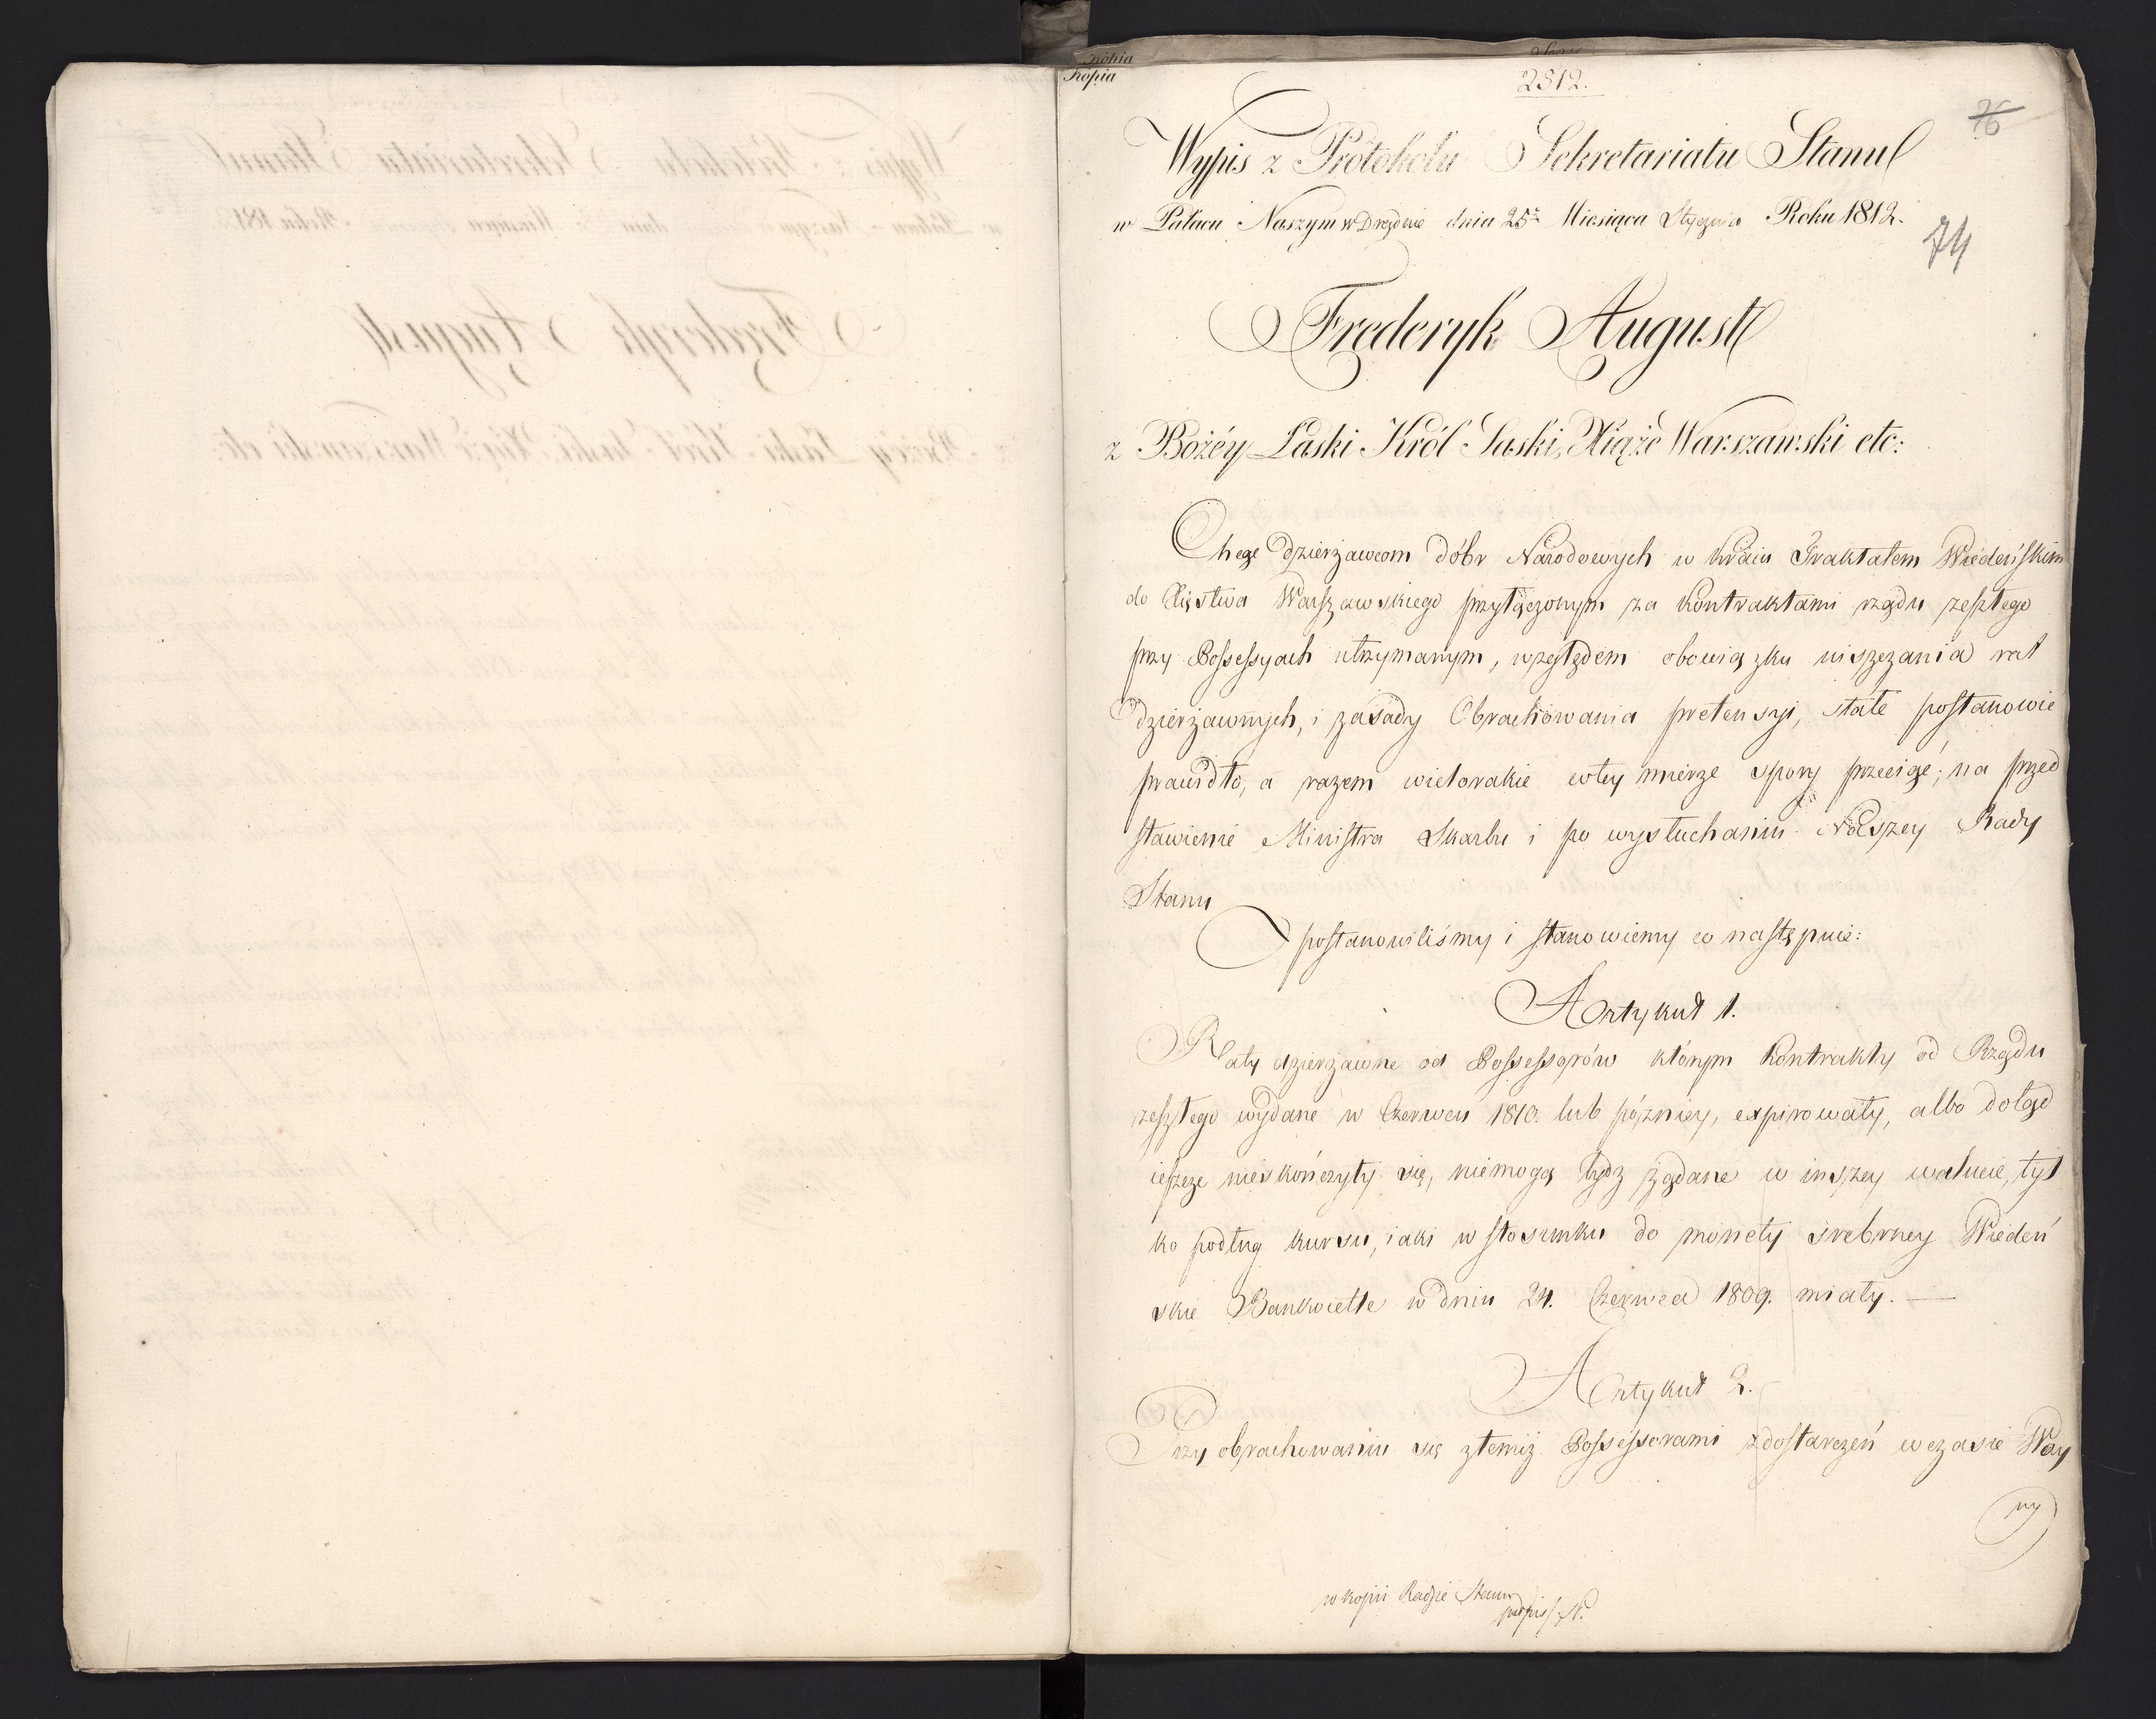 Kopia
Kopia
2512.
76
Wypis z Protokołu Sekretariatu Stanu
w Pałacu Naszym w Dreźdnie dnia 25º Miesiąca Stycznia Roku 1812.
74
Frederyk August
z Bożéy Łaski Król Saski, Xiąże Warszawski etc:
Chcąc dzierżawcom dóbr Narodowych w kraiu Traktatem Wiedeńskim
do Xięstwa Warszawskiego przyłączonym za kontraktami rządu zeszłego
przy Possessyach utrzymanym, względem obowiązku uiszczania rat
dzierżawnych, i zasady Obrachowania pretensyi, stałe postanowić
prawidło, a razem wielorakie w tey mierze spory przeciąć; na przed
stawienie Ministra Skarbu i po wysłuchaniu Naszey Rady
Stanu
postanowiliśmy i stanowiemy co następuie:
Artykuł 1.
Raty dzierżawne od Possessorów którym kontrakty od Rządu
zeszłego wydane w Czerwcu 1810. lub późniey, expirowały, albo dotąd
ieszcze nieskończyły się, niemogą bydz żądane w inszey walucie, tyl
ko podług kursu, iaki w stosunku do monety srebrney Wiedeń
skie Bankocetle w dniu 24. Czerwca 1809. miały. —
Artykuł 2.
Przy obrachowaniu się z temiż Possessorami z dostarczeń w czasie Woy
ny
w kopii Radzie Stanu